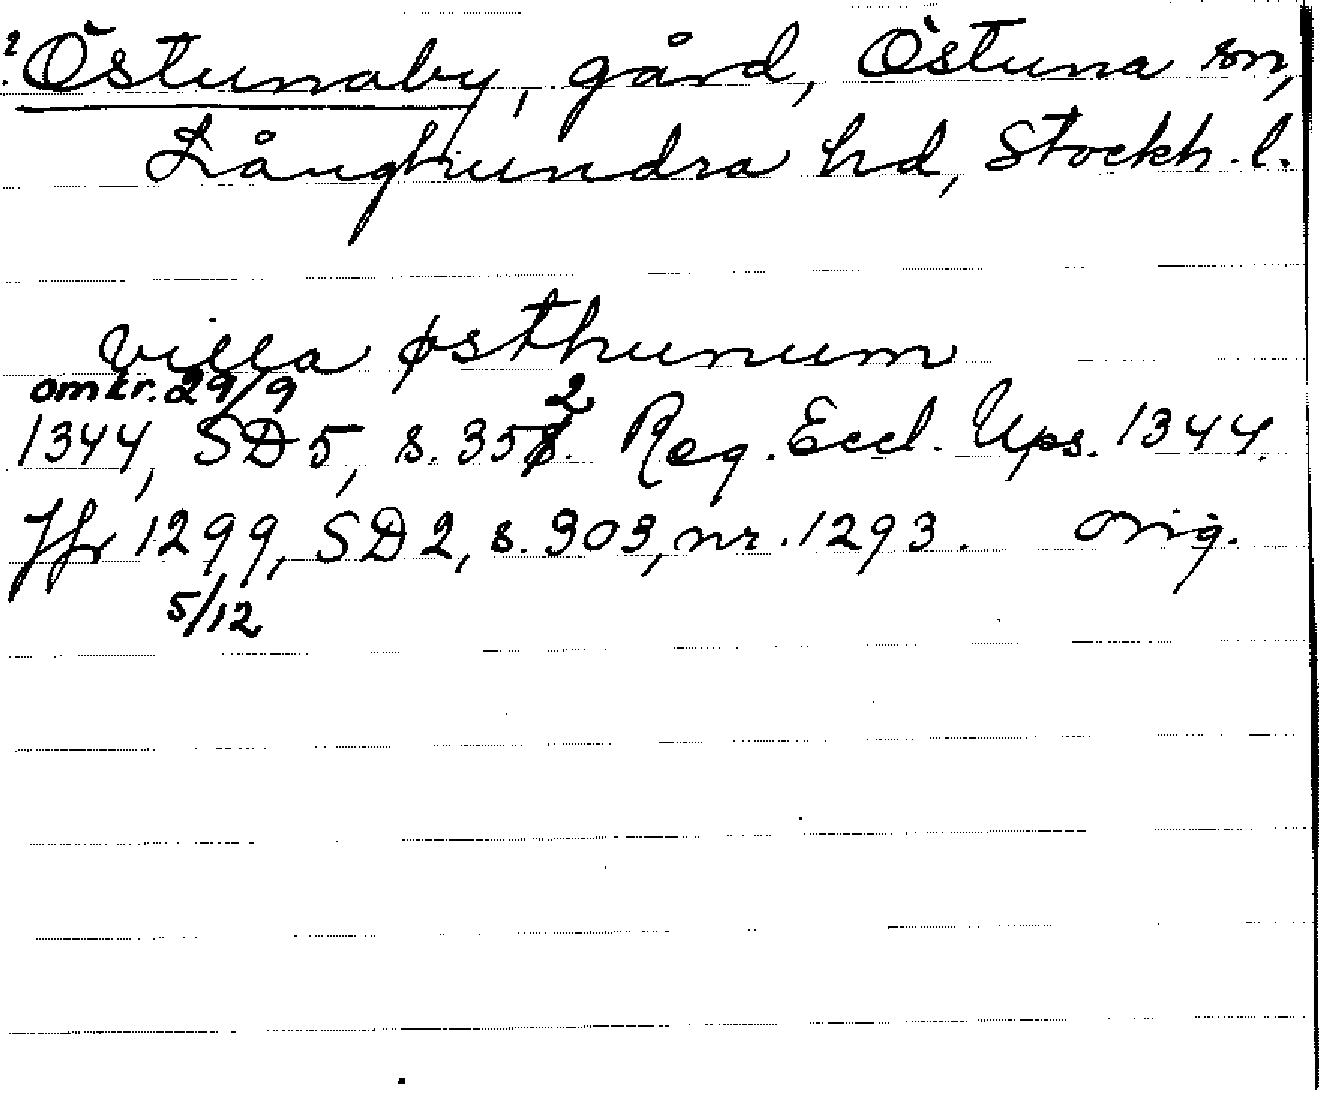 ? Östunaby, gård, Östuna sn,
Långhundra hd, Stockh. l.
villa østhunum
omkr. 29/9
1344, SD 5, s. 352. Reg. Eccl. Ups. 1344.
Jfr 1299, SD 2, s. 303, nr. 1293. orig.
5/12